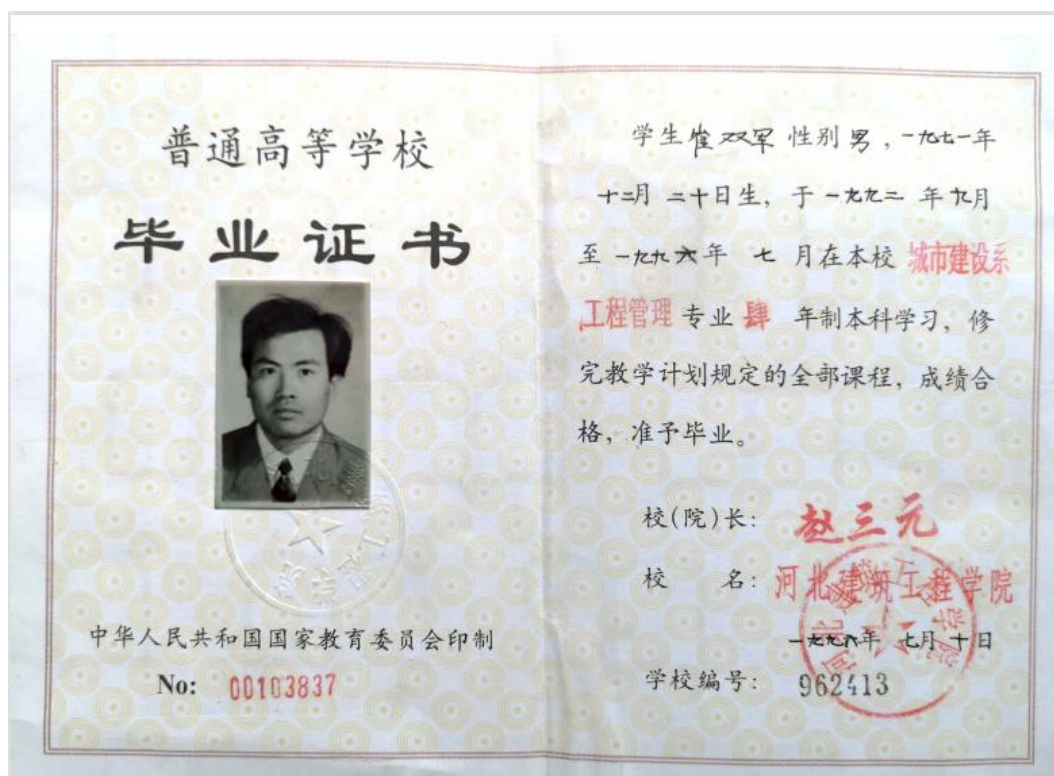 普通高等学校
毕业证书
中华人民共和国国家教育委员会印制
No: 00103837
学生崔双军性别男，一九七一年
十二月二十日生，于一九九二年九月
至一九九六年七月在本校城市建设系
工程管理专业肆年制本科学习，修
完教学计划规定的全部课程，成绩合
格，准予毕业。
校(院)长：赵三元
校名：河北建筑工程学院
一九九六年七月十日
学校编号：962413